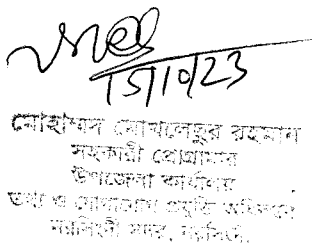 15/10/23
মোহাম্মদ মোখলেছুর রহমান
সহকারী প্রোগ্রামার
উপজেলা কার্যালয়
তথ্য ও যোগাযোগ প্রযুক্তি অধিদপ্তর
নরসিংদী সদর, নরসিংদী.